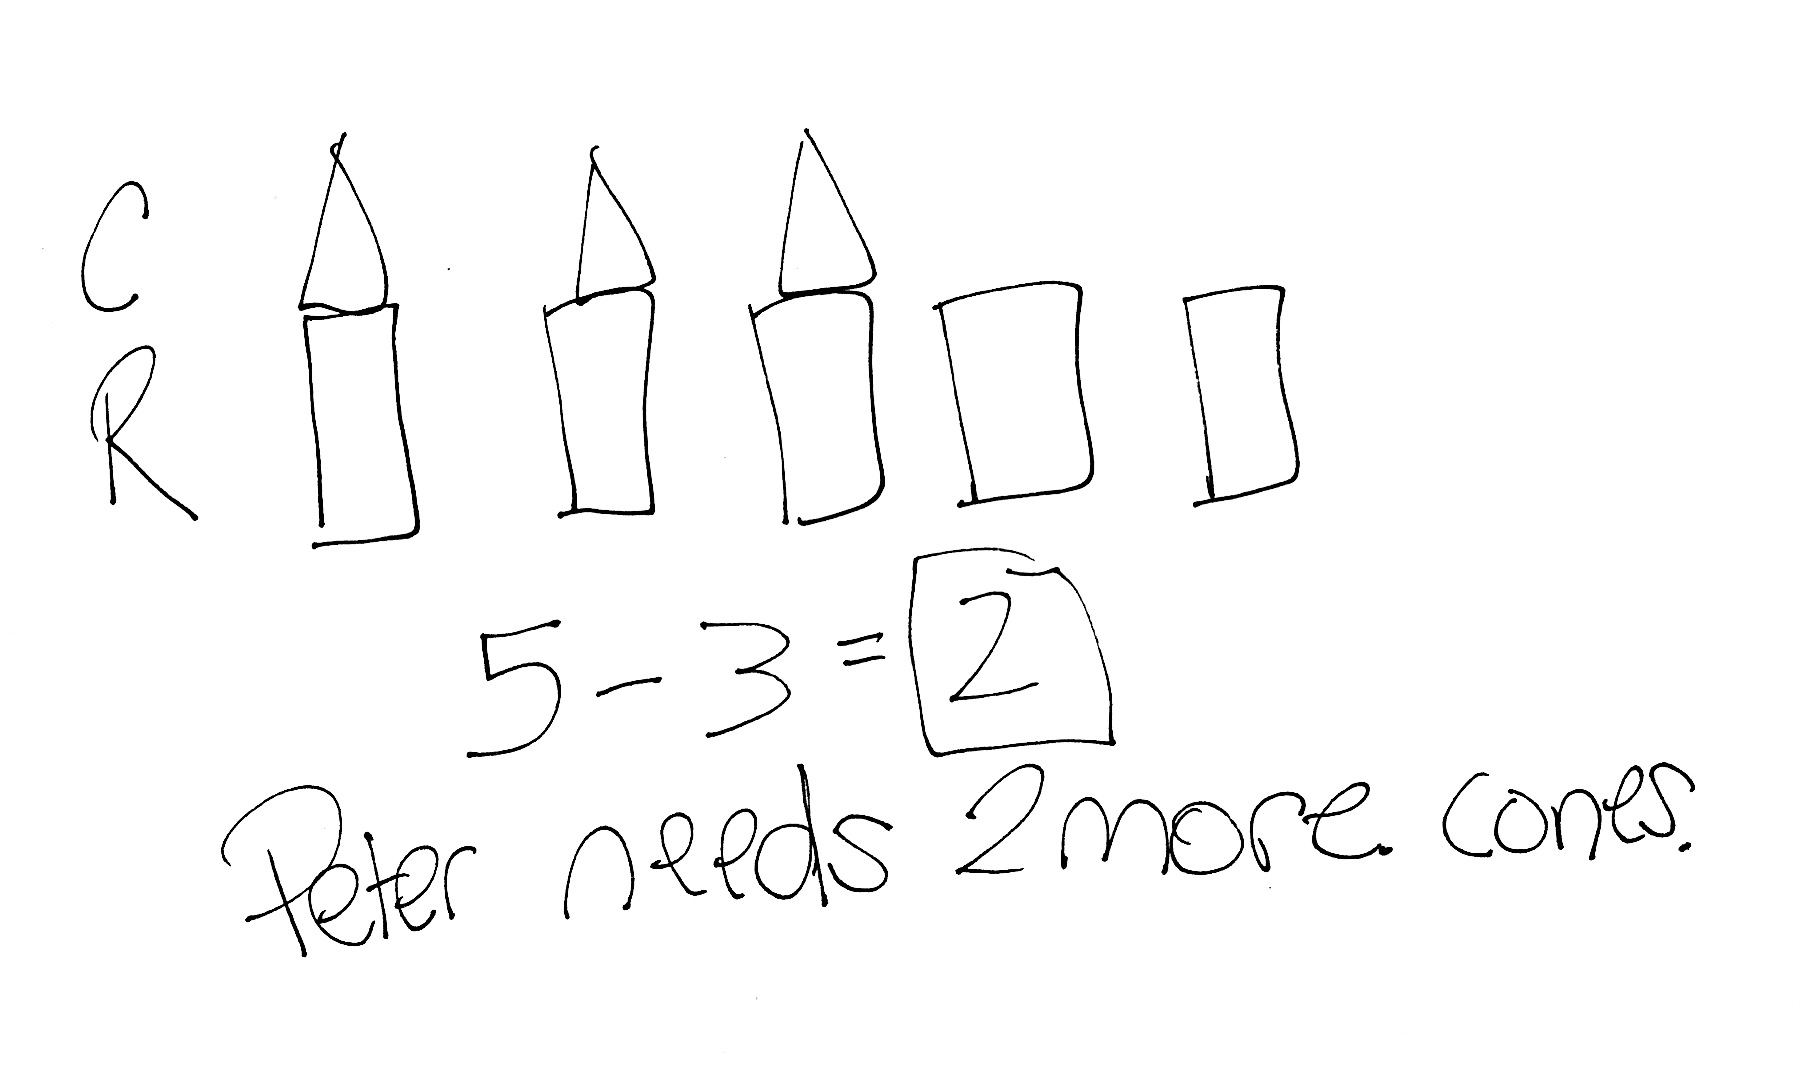 C
R
5 - 3 = 2
Peter needs 2 more cones.